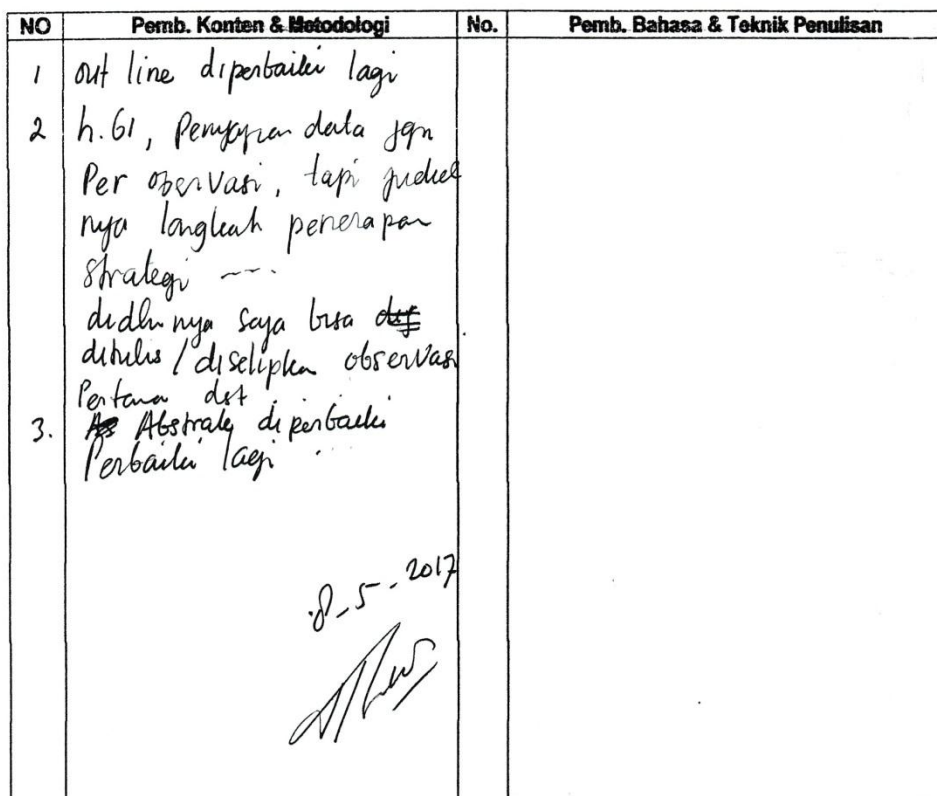 NO Pemb. Konten & Metodologi No. Pemb. Bahasa & Teknik Penulisan
1 out line diperbaiki lagi
2 h.61, Penyajian data jgn
Per obervasi, tapi judul
nya langkah penerapan
strategi ----
didlmnya saja bisa
ditulis / diselipkan observasi
Pertama dst.
3. Abstrak diperbaiki
Perbaiki lagi
8-5-2017